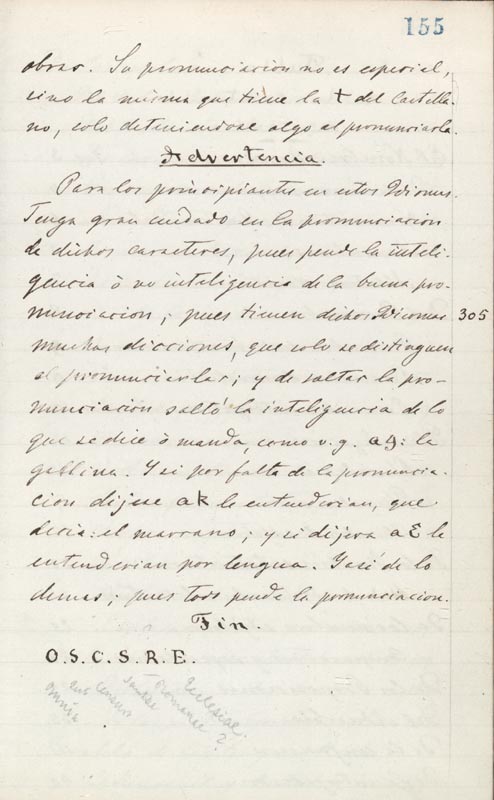 155
obras. Su pronunciacion no es especial,
sino la misma que tiene la t del Castella-
no, solo deteniendose algo al pronunciarla.
Advertencia.
Para los principiantes en estos Idiomas.
Tenga gran cuidado en la pronunciacion
de dichos caracteres, pues pende la inteli-
gencia ò no inteligencia de la buena pro-
nunciacion; pues tienen dichos Idiomas 305
muchas dicciones, que solo se distinguen
al pronunciarlas; y de faltar la pro-
nunciacion faltó la inteligencia de lo
que se dice ò manda, como v. g. a la
gallina. Y si por falta de la pronuncia-
cion dijese ak le entenderian, que
decia: el marrano; y si dijera aƐ le
entenderian por lengua. Y así de lo
demas; pues todo pende la pronunciacion.
Fin.
O. S. C. S. R. E.
omnia sub censura Sanctae Romanae Ecclesiae ?